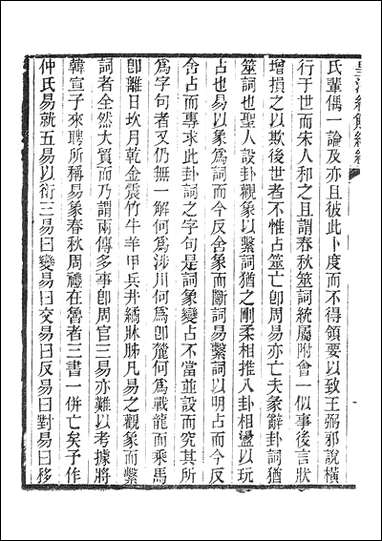 氏輩偶一論及亦且彼此卜度而不得領要以致王弼邪說橫
行于世而宋人和之且謂春秋筮詞統屬附會一似事後言狀
增損之以欺後世者不惟占筮亡卽周易亦亡夫彖辭卦詞猶
筮詞也聖人設卦觀象以繫詞猶之剛柔相推八卦相盪以玩
占也易以象爲詞而今反舍象而斷詞易繫詞以明占而今反
舍占而專求此卦詞之字句是詞象變占不當並設而究其所
爲字句者又仍無一解何爲涉川何爲卽麓何爲戰龍而乘馬
卽離日坎月乾金震竹牛羊甲兵井繘牀胏凡易之觀象而繫
詞者全然大貿而乃謂兩傳多事卽周官三易亦難以考據將
韓宣子來聘所稱易象春秋周禮在魯者三書一併亡矣予作
仲氏易就五易以衍三易曰變易曰交易曰反易曰對易曰移